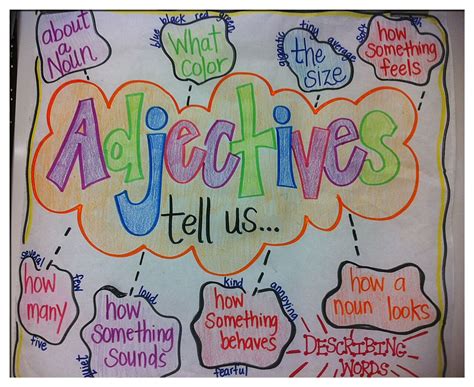 about
a
Noun
blue black red green
What
Color
gigantic tiny average
the
size
soft
how
something
feels
Adjectives
tell us...
several
how
many
five
loud
how
something
sounds
quiet
kind annoying
how
something
behaves
fearful
how a
noun looks
DESCRIBING
WORDS